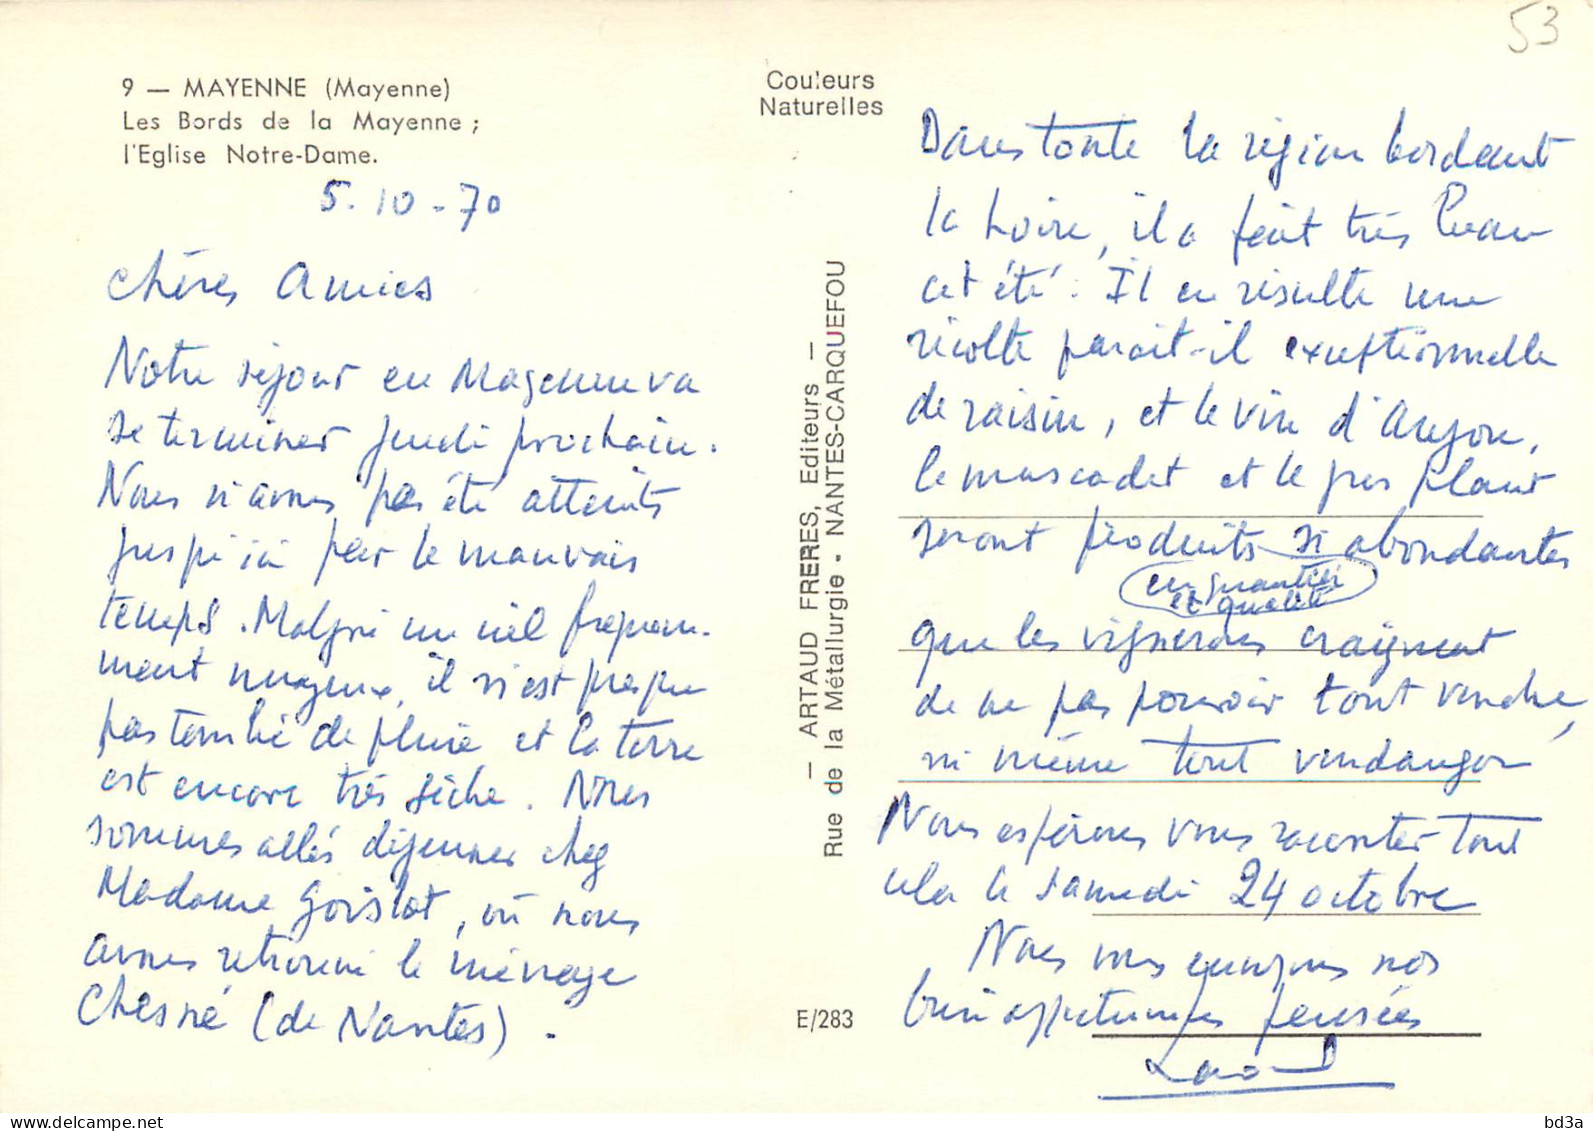 53
9 — MAYENNE (Mayenne)
Les Bords de la Mayenne ;
l'Eglise Notre-Dame.
5-10-70
Chères Amies
Notre séjour en Mayenne va
se terminer jeudi prochain.
Nous n'avons pas été atteints
jusqu'ici par le mauvais
temps. Malgré un ciel fréquem-
ment nuageux, il n'est presque
pas tombé de pluie et la terre
est encore très sèche. Nous
sommes allés déjeuner chez
Madame Goislot, où nous
avons retrouvé le ménage
Chesné (de Nantes).
Couleurs
Naturelles
— ARTAUD FRERES, Editeurs —
Rue de la Métallurgie - NANTES-CARQUEFOU
E/283
Dans toute la région bordant
la Loire, il a fait très beau
cet été. Il en résulte une
récolte parait-il exceptionnelle
de raisin, et le vin d'Anjou,
le muscadet et le gros plant
seront produits si abondantes
en quantité
et qualité
que les vignerons craignent
de ne pas pouvoir tout vendre,
ni même tout vendanger
Nous espérons vous raconter tout
cela le samedi 24 octobre
Nous vous envoyons nos
bien affectueuses pensées